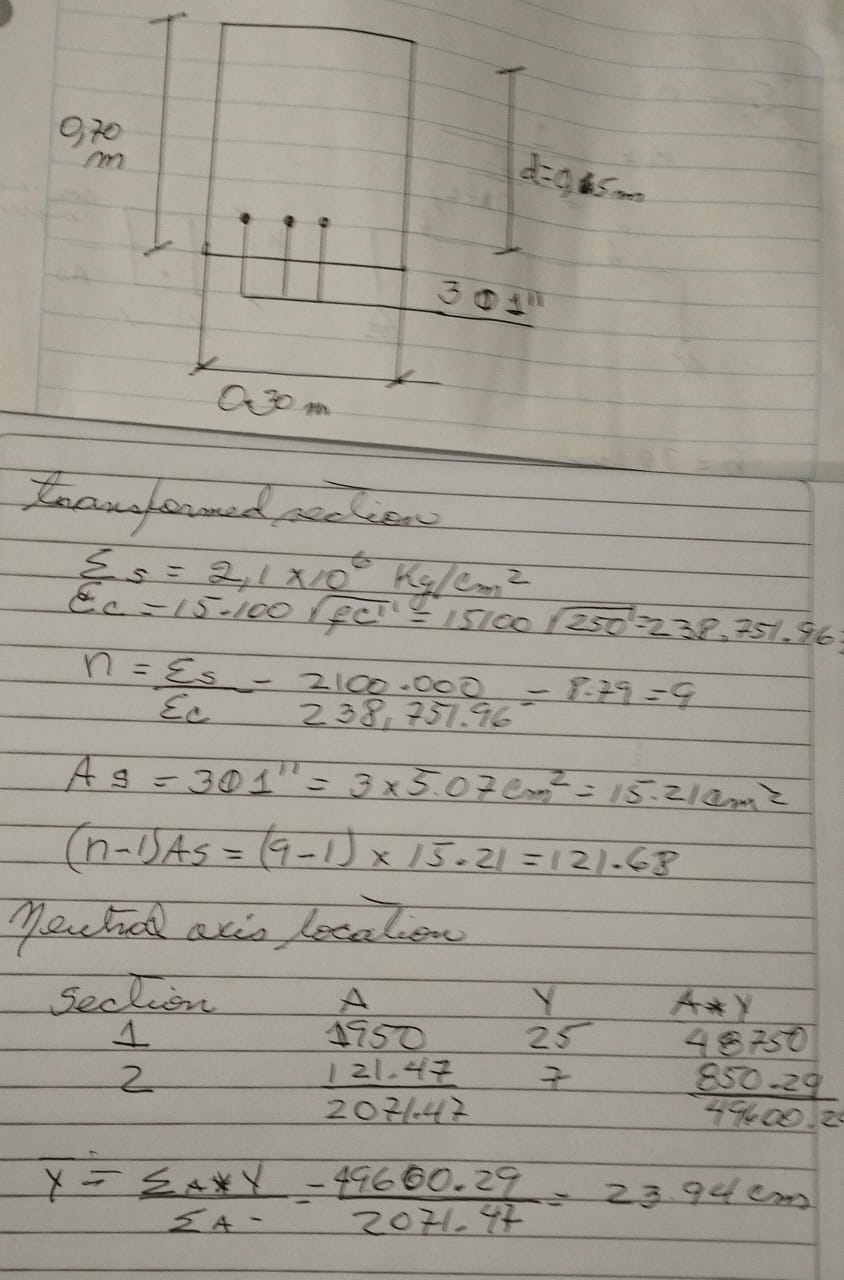 0,70
m
d=0,65m
3 Φ 1"
0.30 m
Transformed section
Es = 2,1×10⁶ Kg/cm²
Ec = 15.100 √fc' = 15100 √250 = 238,751.96
n = Es/Ec = 2100.000/238,751.96 = 8.79 = 9
As = 3Φ1" = 3×5.07cm² = 15.21cm²
(n-1)As = (9-1) × 15.21 = 121.68
Neutral axis location
Section A Y A*Y
1 1950 25 48750
2 121.47 7 850.29
2071.47 49600.2
Y = ΣA*Y/ΣA = 49600.29/2071.47 = 23.94 cm